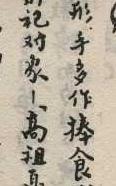 形手多作捧食
记对象一高祖